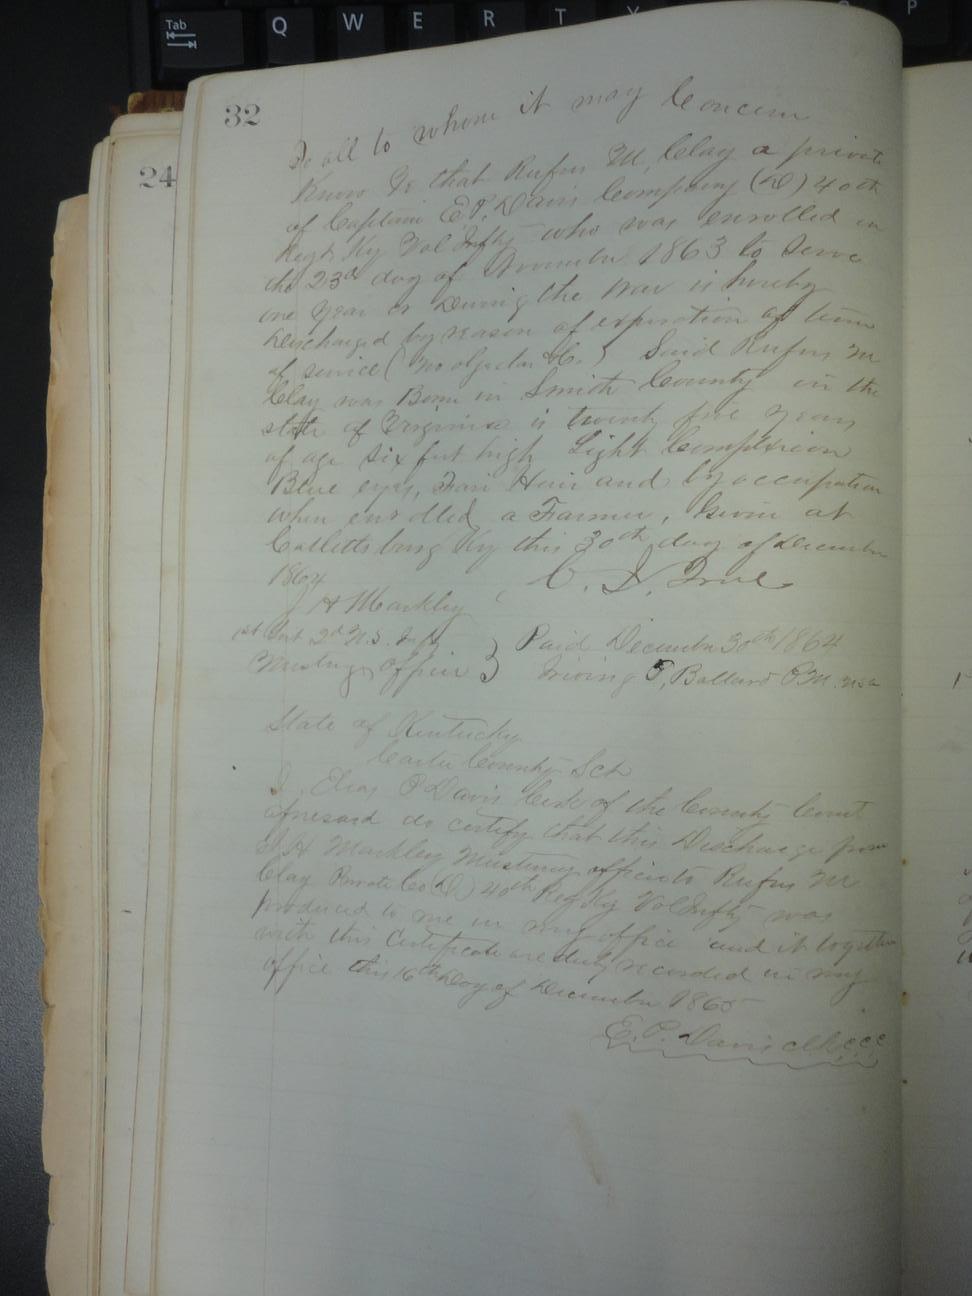 Tab Q W E R T Y P
32
24
To all to whom it may Concern
Know Ye that Rufus M, Clay a private
of Captain E. P. Davis Company (D) 40th
Regt Ky Vol Infty who was enrolled on
the 23rd day of November 1863 to Serve
one year or During the War is hereby
Discharged by reason of expiration of term
of service (No objection &C.) Said Rufus M
Clay was Born in Smith County in the
state of Virginia is twenty five years
of age six feet high Light Complexion
Blue eyes, Fair Hair and by occupation
when enrolled, a Farmer, Given at
Catlettsburg Ky this 30th day of December
1864 C. J. True
J H Markley
1st Lieut 2nd U.S. Infty } Paid December 30th 1864
Mustering Officer Irving Ballard P.M. USA
State of Kentucky
Carter County Sct
I, Elias P Davis Clerk of the County Court
aforesaid do certify that this Discharge from
J. H Markley Mustering officer to Rufus M
Clay Private Co (D) 40th Reg Ky Vol Infty was
produced to me in my office and it together
with this Certificate are duly recorded in my
office this 16th Day of December 1865
E. P. Davis clk c c c